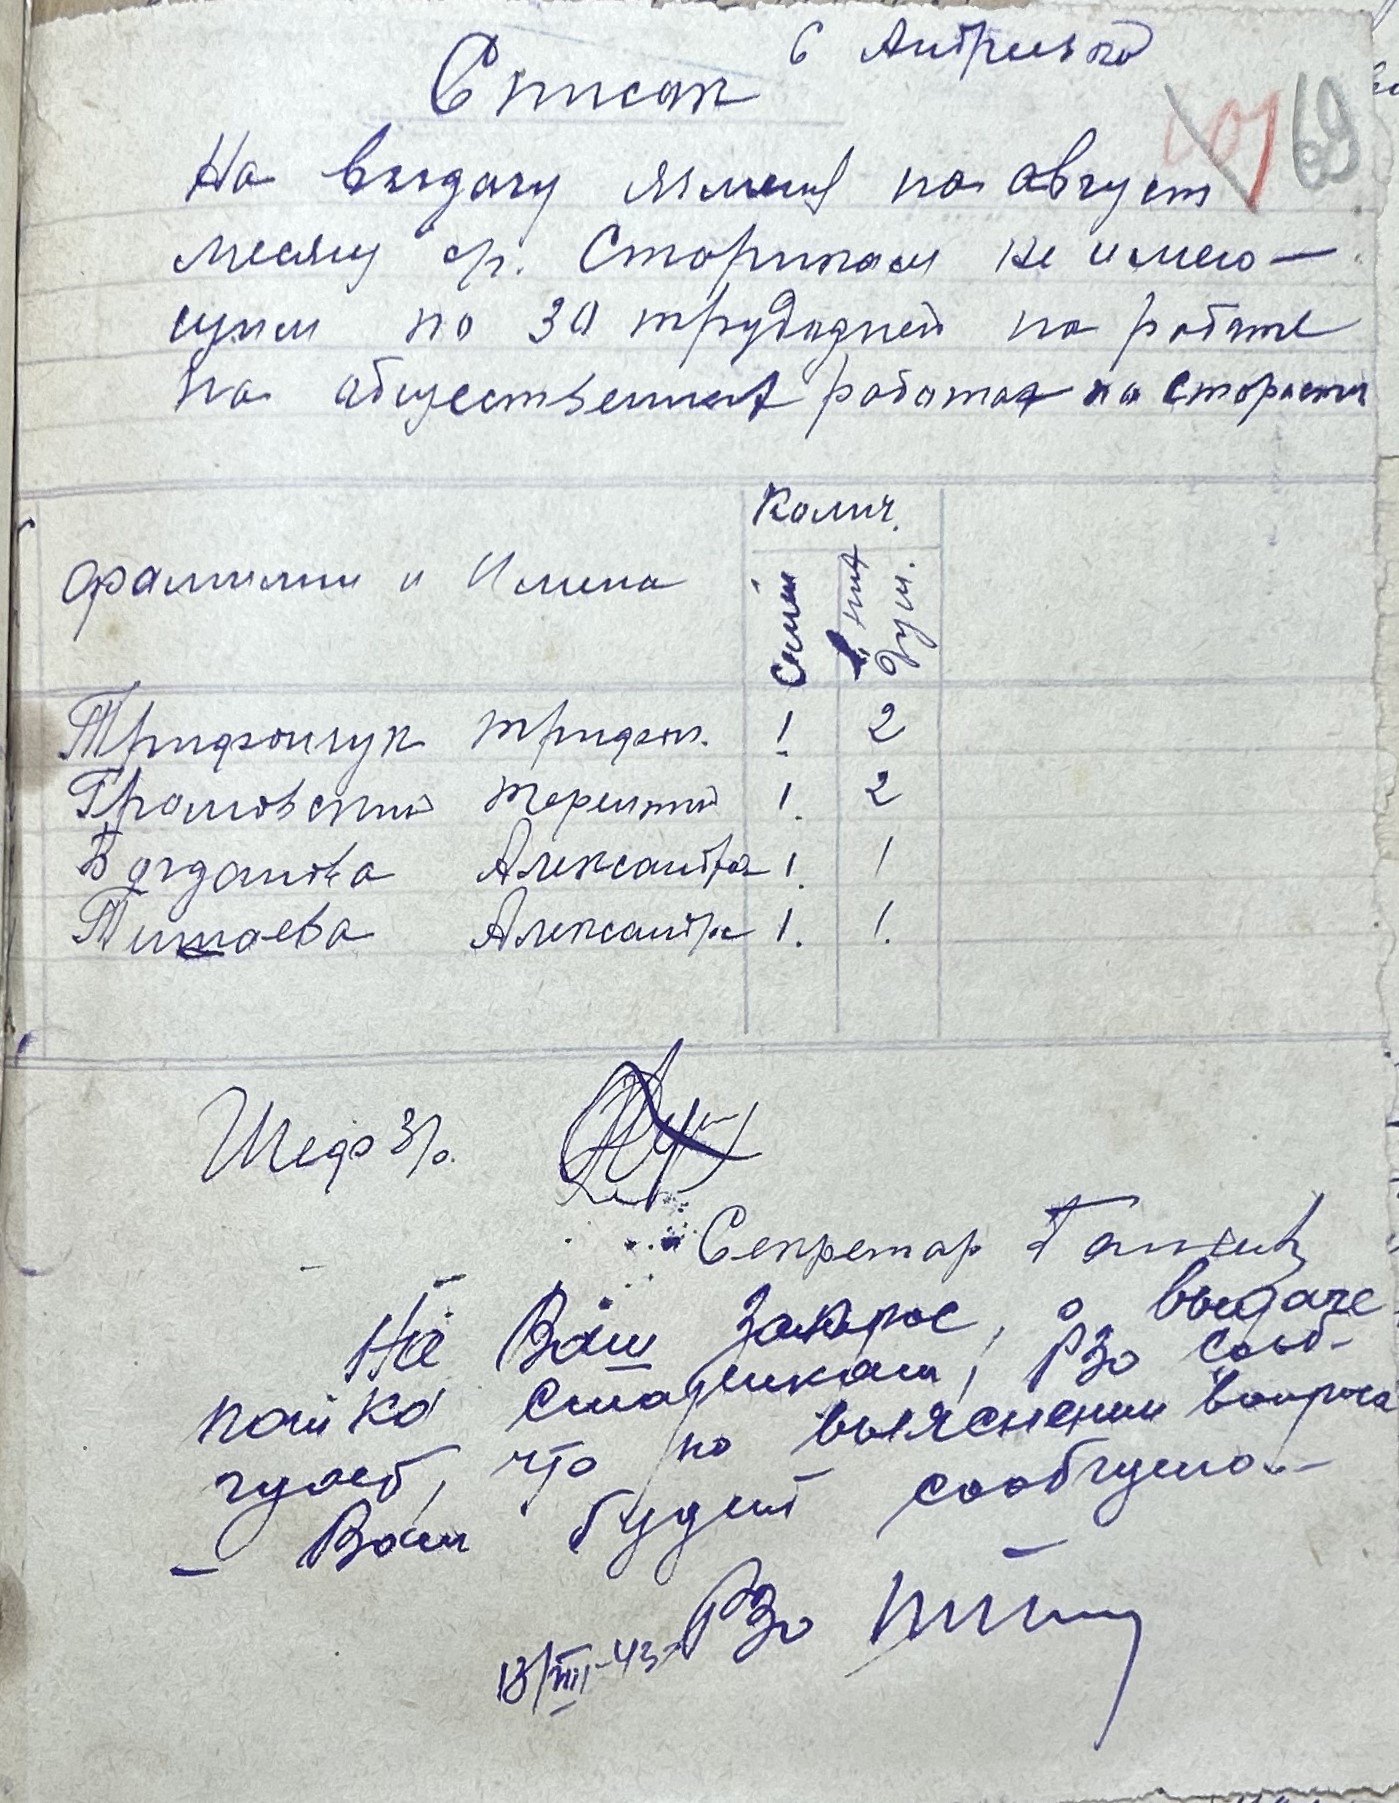 с Антрил
Список
101 69
На выдачу ячмень на август
месяцу гр. Старикам не имею-
щим по 30 трудодней на работе
на общественных работах на старости
фамилии и Имена
Колич.
семи
в них душ.
Трифончук трифон. 1. 2
Грановский терентий 1. 2
Богданова Александра 1. 1
Титаева Александра 1. 1.
Шеф з/о.
Секретар
На Ваш запрос, о выдаче
пайка старикам, РЗО сооб-
щует, что по выяснении вопроса
Вам будет сообщено.
РЗО
13/VIII-43